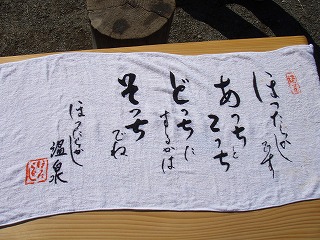 ほったらかしです
あっちとこっち
どっちにするかは
そっちでね
ほったらかし
温泉